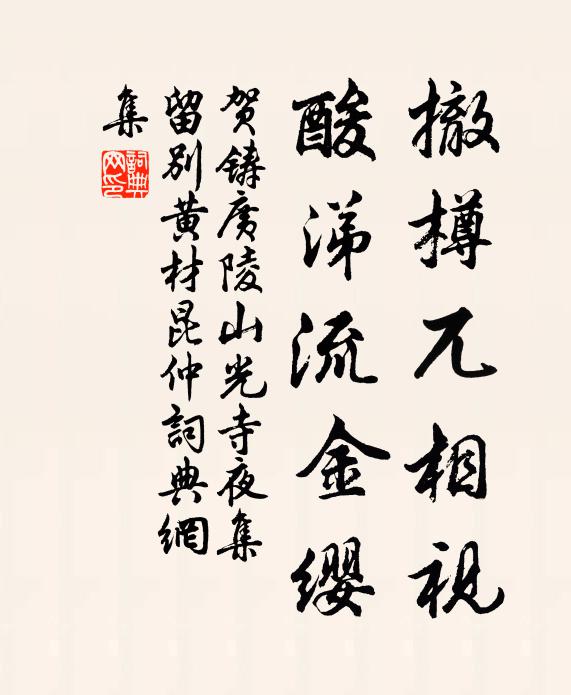 撤樽兀相视
酸涕流金缨
贺铸广陵山光寺夜集
留别黄材昆仲詞典網
集
詞典網印